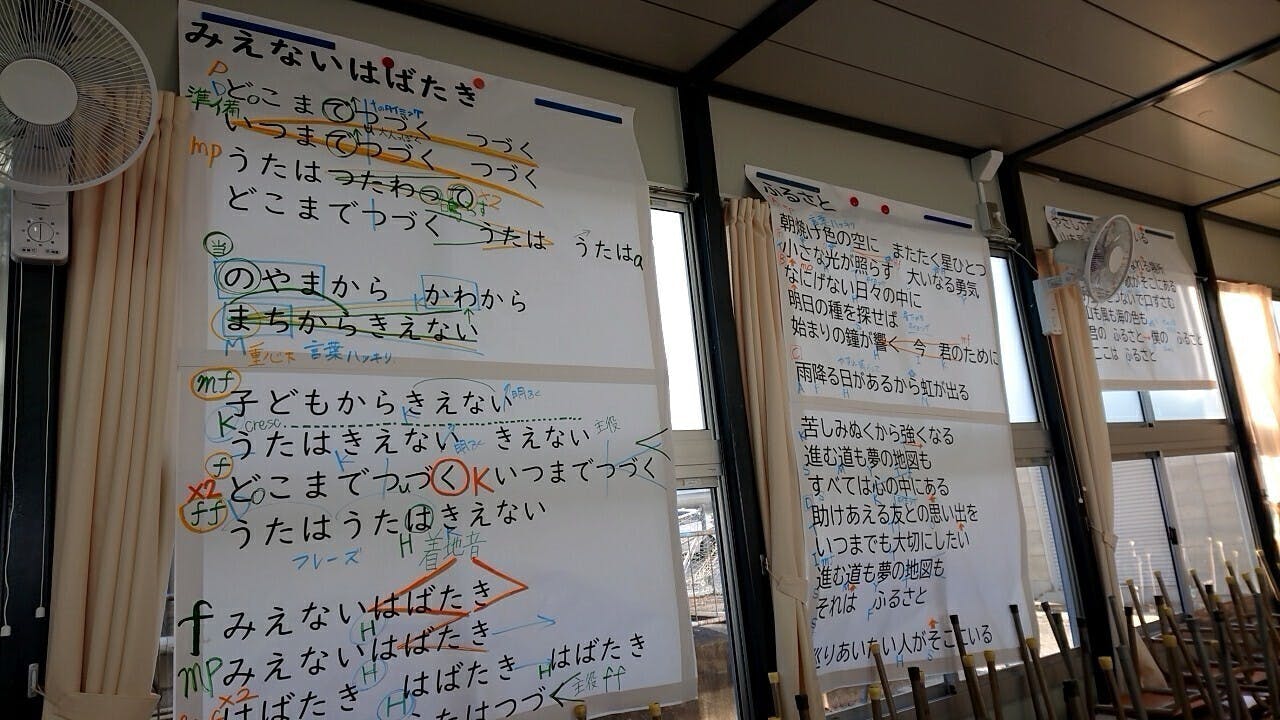 みえないはばたき
P
準備
どこまでつづく つづく
いつまでつづく つづく
mp
うたはつたわって
×2
どこまでつづく うたは うたはa
当
のやまから かわから
まちからきえない
M 重心下 言葉ハッキリ
mf
子どもからきえない
K cresc
うたはきえない きえない 主役
f
どこまでつづく K いつまでつづく
×2
ff
うたはうたはきえない
フレーズ H 着地音
f みえないはばたき
H
mp みえないはばたき
×2
はばたき H はばたき H はばたき
うたはつづく 主役 ff
ふるさと
朝焼け色の空に またたく星ひとつ
小さな光が照らす 大いなる勇気
なにげない日々の中に
明日の種を探せば
始まりの鐘が響く 今 君のために
雨降る日があるから虹が出る
苦しみぬくから強くなる
進む道も夢の地図も
すべては心の中にある
助けあえる友との思い出を
いつまでも大切にしたい
進む道も夢の地図も
それは ふるさと
巡りあいたい人がそこにいる
やさしさ
がそこにある
つないで口ずさむ
山も風も海の色も
君の ふるさと 僕の ふるさと
ここは ふるさと